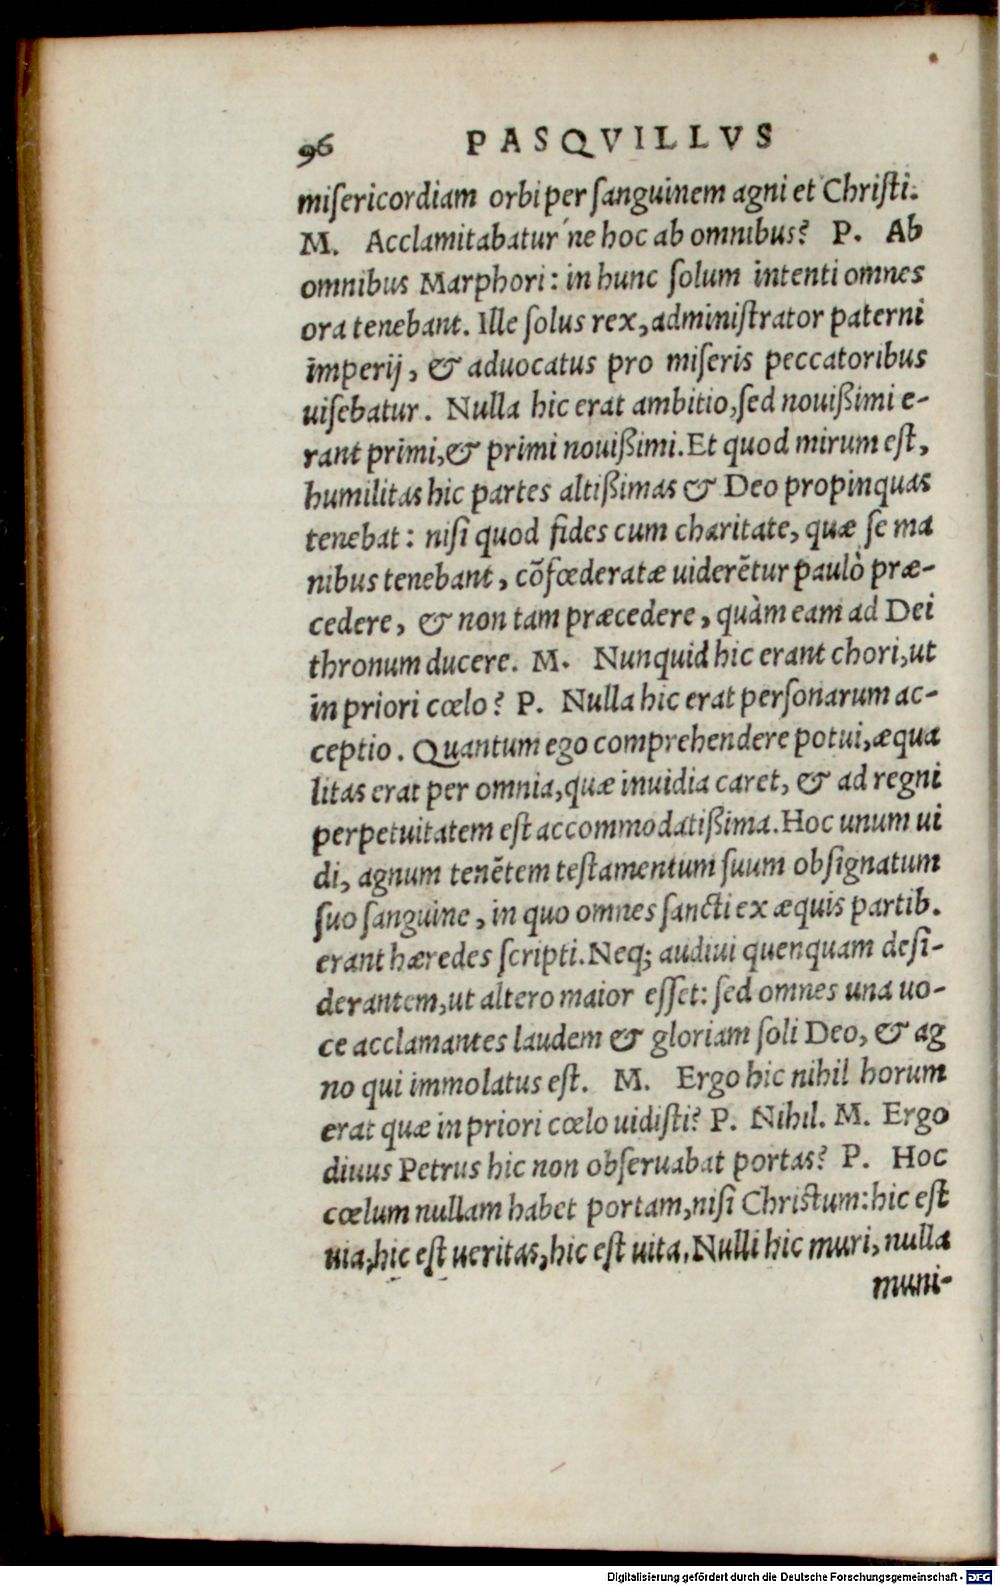 96 PASQVILLVS
miſericordiam orbi per ſanguinem agni et Chriſti.
M. Acclamitabatur´ne hoc ab omnibus? P. Ab
omnibus Marphori: in hunc ſolum intenti omnes
ora tenebant. Ille ſolus rex, adminiſtrator paterni
imperij, & aduocatus pro miſeris peccatoribus
uiſebatur. Nulla hic erat ambitio, ſed nouißimi e-
rant primi, & primi nouißimi. Et quod mirum eſt,
humilitas hic partes altißimas & Deo propinquas
tenebat: niſi quod fides cum charitate, quæ ſe ma
nibus tenebant, cõfœderatæ uiderẽtur paulò præ-
cedere, & non tam præcedere, quàm eam ad Dei
thronum ducere. M. Nunquid hic erant chori, ut
in priori cœlo? P. Nulla hic erat perſonarum ac-
ceptio. Quantum ego comprehendere potui, æqua
litas erat per omnia, quæ inuidia caret, & ad regni
perpetuitatem eſt accommodatißima. Hoc unum ui
di, agnum tenẽtem teſtamentum ſuum obſignatum
ſuo ſanguine, in quo omnes ſancti ex æquis partib.
erant hæredes ſcripti. Neq; audiui quenquam deſi-
derantem, ut altero maior eſſet: ſed omnes una uo-
ce acclamantes laudem & gloriam ſoli Deo, & ag
no qui immolatus eſt. M. Ergo hic nihil horum
erat quæ in priori cœlo uidiſti? P. Nihil. M. Ergo
diuus Petrus hic non obſeruabat portas? P. Hoc
cœlum nullam habet portam, niſi Chriſtum: hic eſt
uia, hic eſt ueritas, hic eſt uita. Nulli hic muri, nulla
muni-
Digitalisierung gefördert durch die Deutsche Forschungsgemeinschaft - DFG